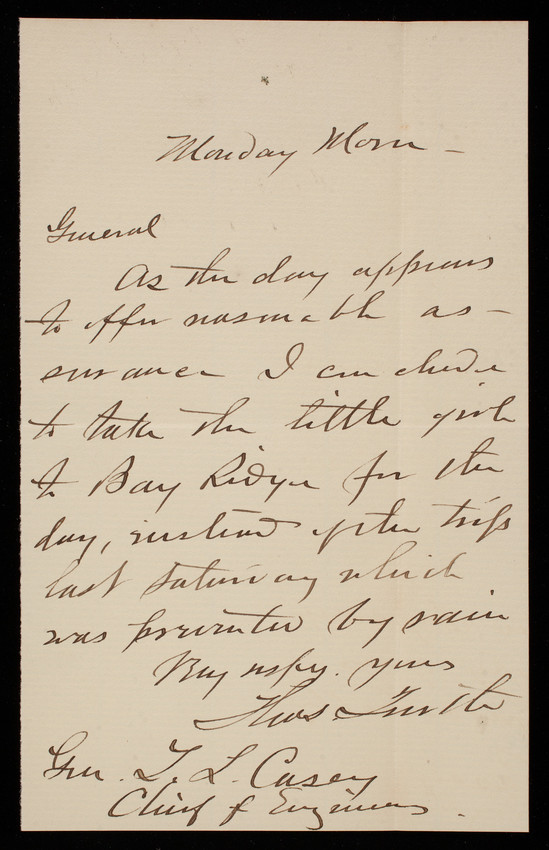 Monday Morn -
General
As the day appears
to offer reasonable as-
surance I conclude
to take the little girls
to Bay Ridge for the
day, instead of the trip
last Saturday which
was prevented by rain
Very respy. yours
Thos
Gen. T. L. Casey
Chief of Engineers.